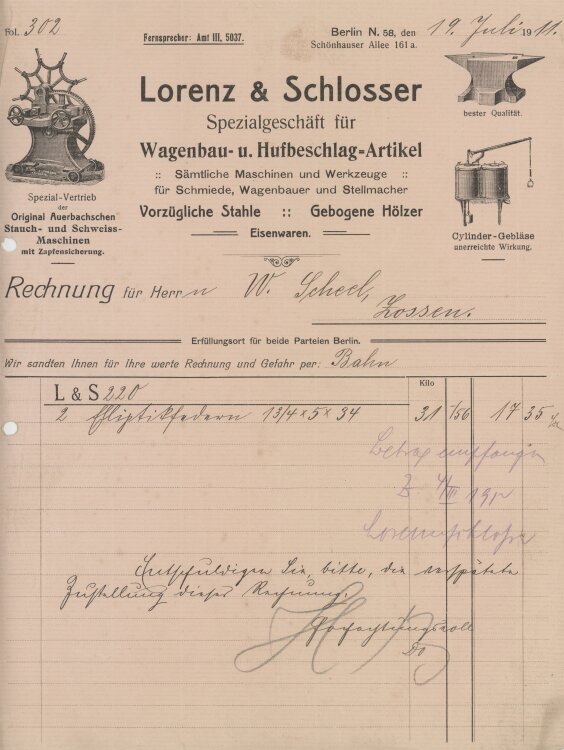 Fol. 302
Fernsprecher: Amt III, 5037.
Berlin N. 58, den 19. Juli 1911.
Schönhauser Allee 161a.
Lorenz & Schlosser
Spezialgeschäft für
Wagenbau- u. Hufbeschlag-Artikel
:: Sämtliche Maschinen und Werkzeuge ::
für Schmiede, Wagenbauer und Stellmacher
Vorzügliche Stahle :: Gebogene Hölzer
Eisenwaren.
Spezial-Vertrieb
der
Original Auerbachschen
Stauch- und Schweiss-
Maschinen
mit Zapfensicherung.
bester Qualität.
Cylinder-Gebläse
unerreichte Wirkung.
Rechnung für Herrn W. Scheel,
Zossen.
Erfüllungsort für beide Parteien Berlin.
Wir sandten Ihnen für Ihre werte Rechnung und Gefahr per: Bahn
Kilo
L & S 220
2 Elliptikfedern 1 3/4 x 5 x 34 31 /56 17 35
Betrag empfangen
Lorenz & Schlosser
Entschuldigen Sie, bitte, die verspätete
Zustellung dieser Rechnung.
Hochachtungsvoll
Do